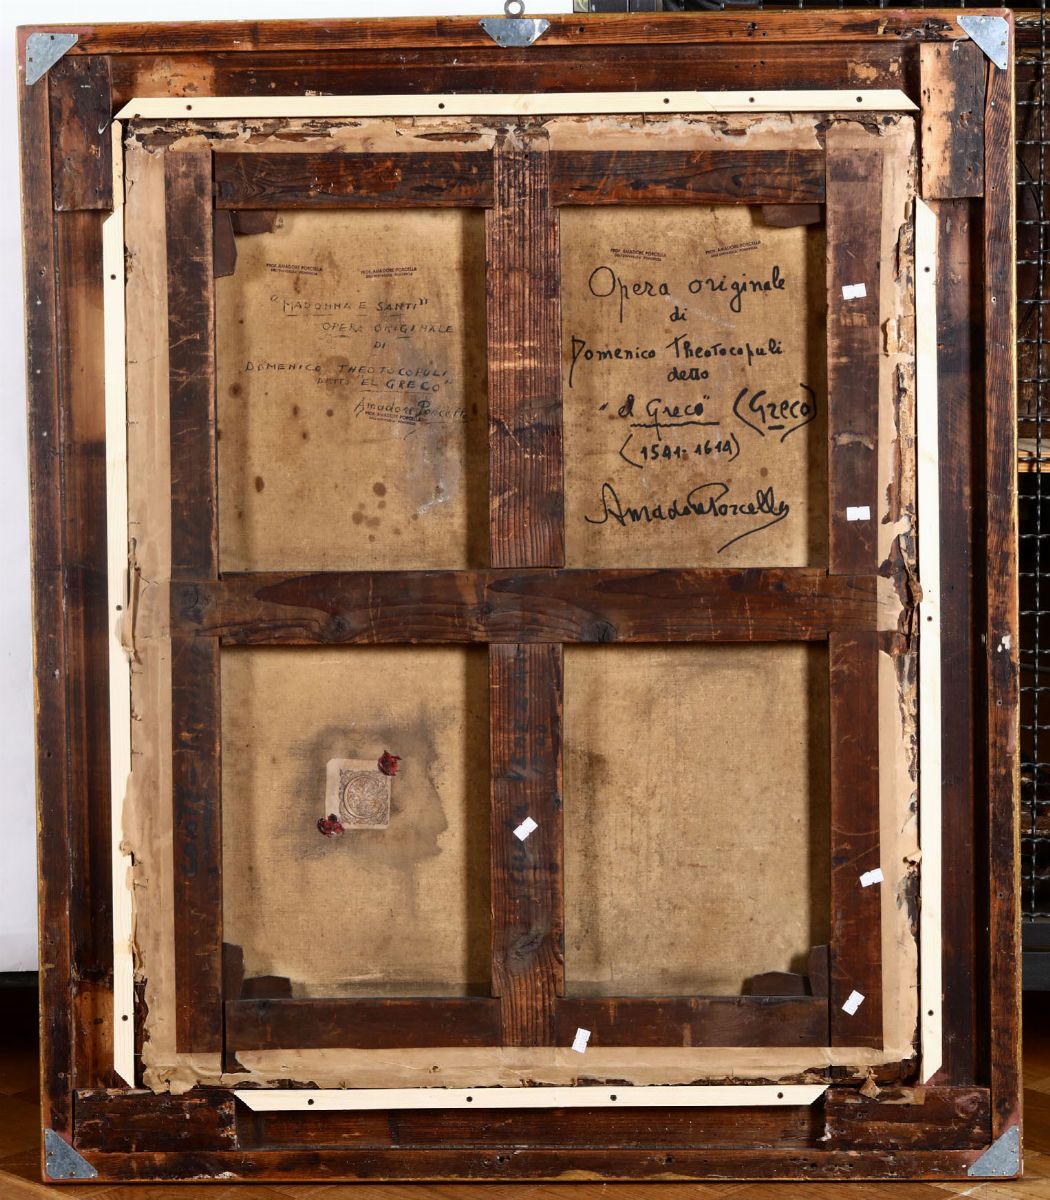 PROF. AMADORE PORCELLA
PROF. AMADORE PORCELLA
"MADONNA E SANTI"
OPERA ORIGINALE
DI
DOMENICO THEOTOCOPULI
DETTO "EL GRECO"
Amadore Porcella
PROF. AMADORE PORCELLA
PROF. AMADORE PORCELLA
PROF. AMADORE PORCELLA
Opera originale
di
Domenico Theotocopuli
detto
"el Greco" (Greco)
(1541-1614)
Amadore Porcella